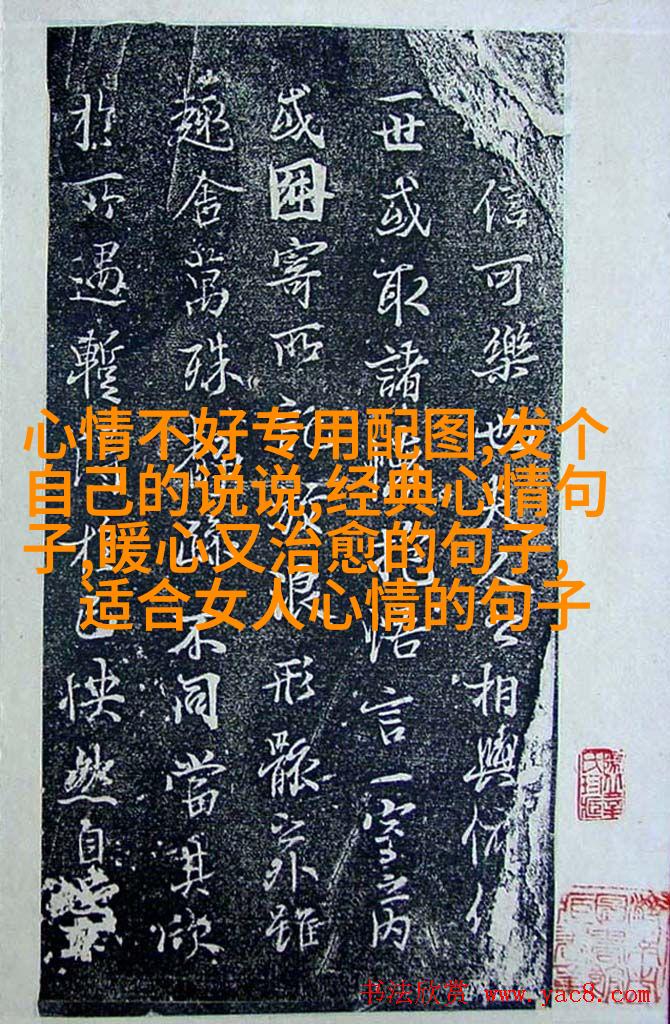 心情不好专用配图,发个
自己的说说,经典心情句
子,暖心又治愈的句子,
适合女人心情的句子
信可樂也夫人之相與俯仰
一世或取諸懷抱悟言一室之內
或因寄所託放浪形骸之外雖
趣舍萬殊靜躁不同當其欣
於所遇暫得於己快然自
书法欣赏 www.yac8.com